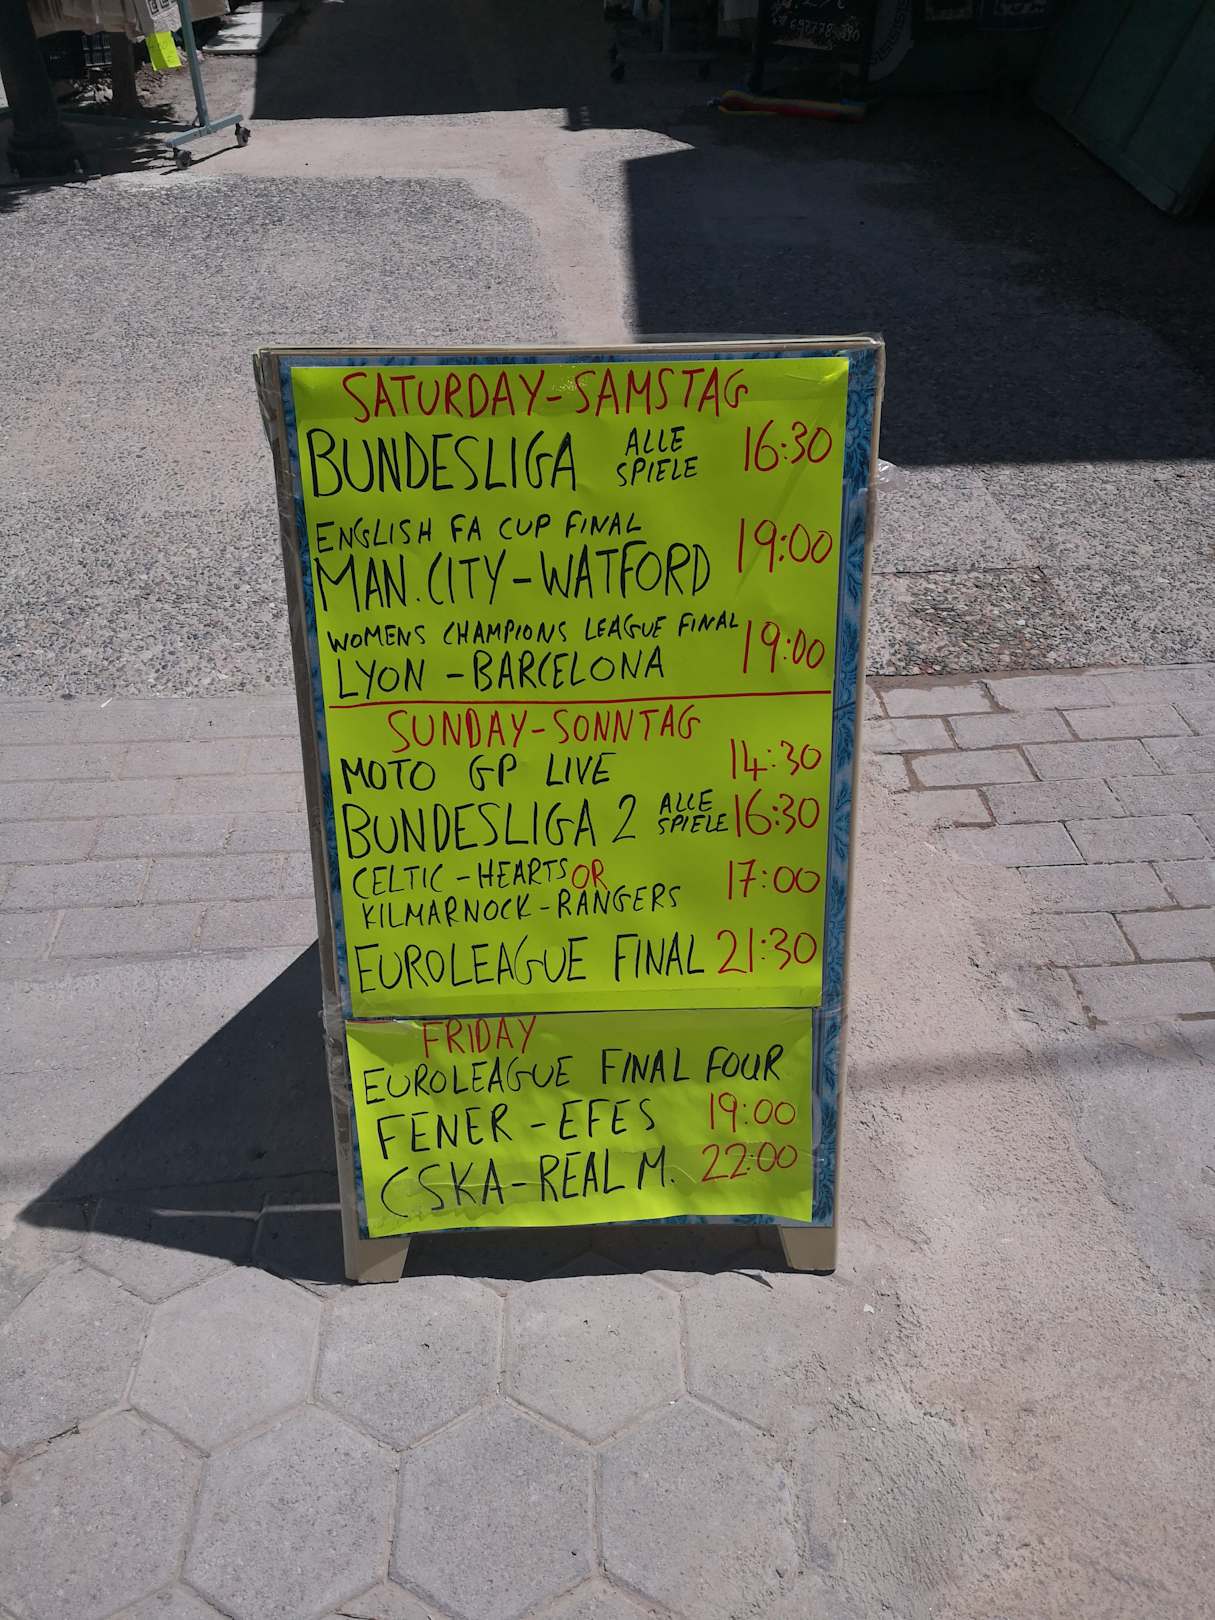 SATURDAY-SAMSTAG
BUNDESLIGA ALLE SPIELE 16:30
ENGLISH FA CUP FINAL
MAN. CITY-WATFORD 19:00
WOMENS CHAMPIONS LEAGUE FINAL
LYON-BARCELONA 19:00
SUNDAY-SONNTAG
MOTO GP LIVE 14:30
BUNDESLIGA 2 ALLE SPIELE 16:30
CELTIC-HEARTS OR
KILMARNOCK-RANGERS 17:00
EUROLEAGUE FINAL 21:30
FRIDAY
EUROLEAGUE FINAL FOUR
FENER-EFES 19:00
CSKA-REAL M. 22:00